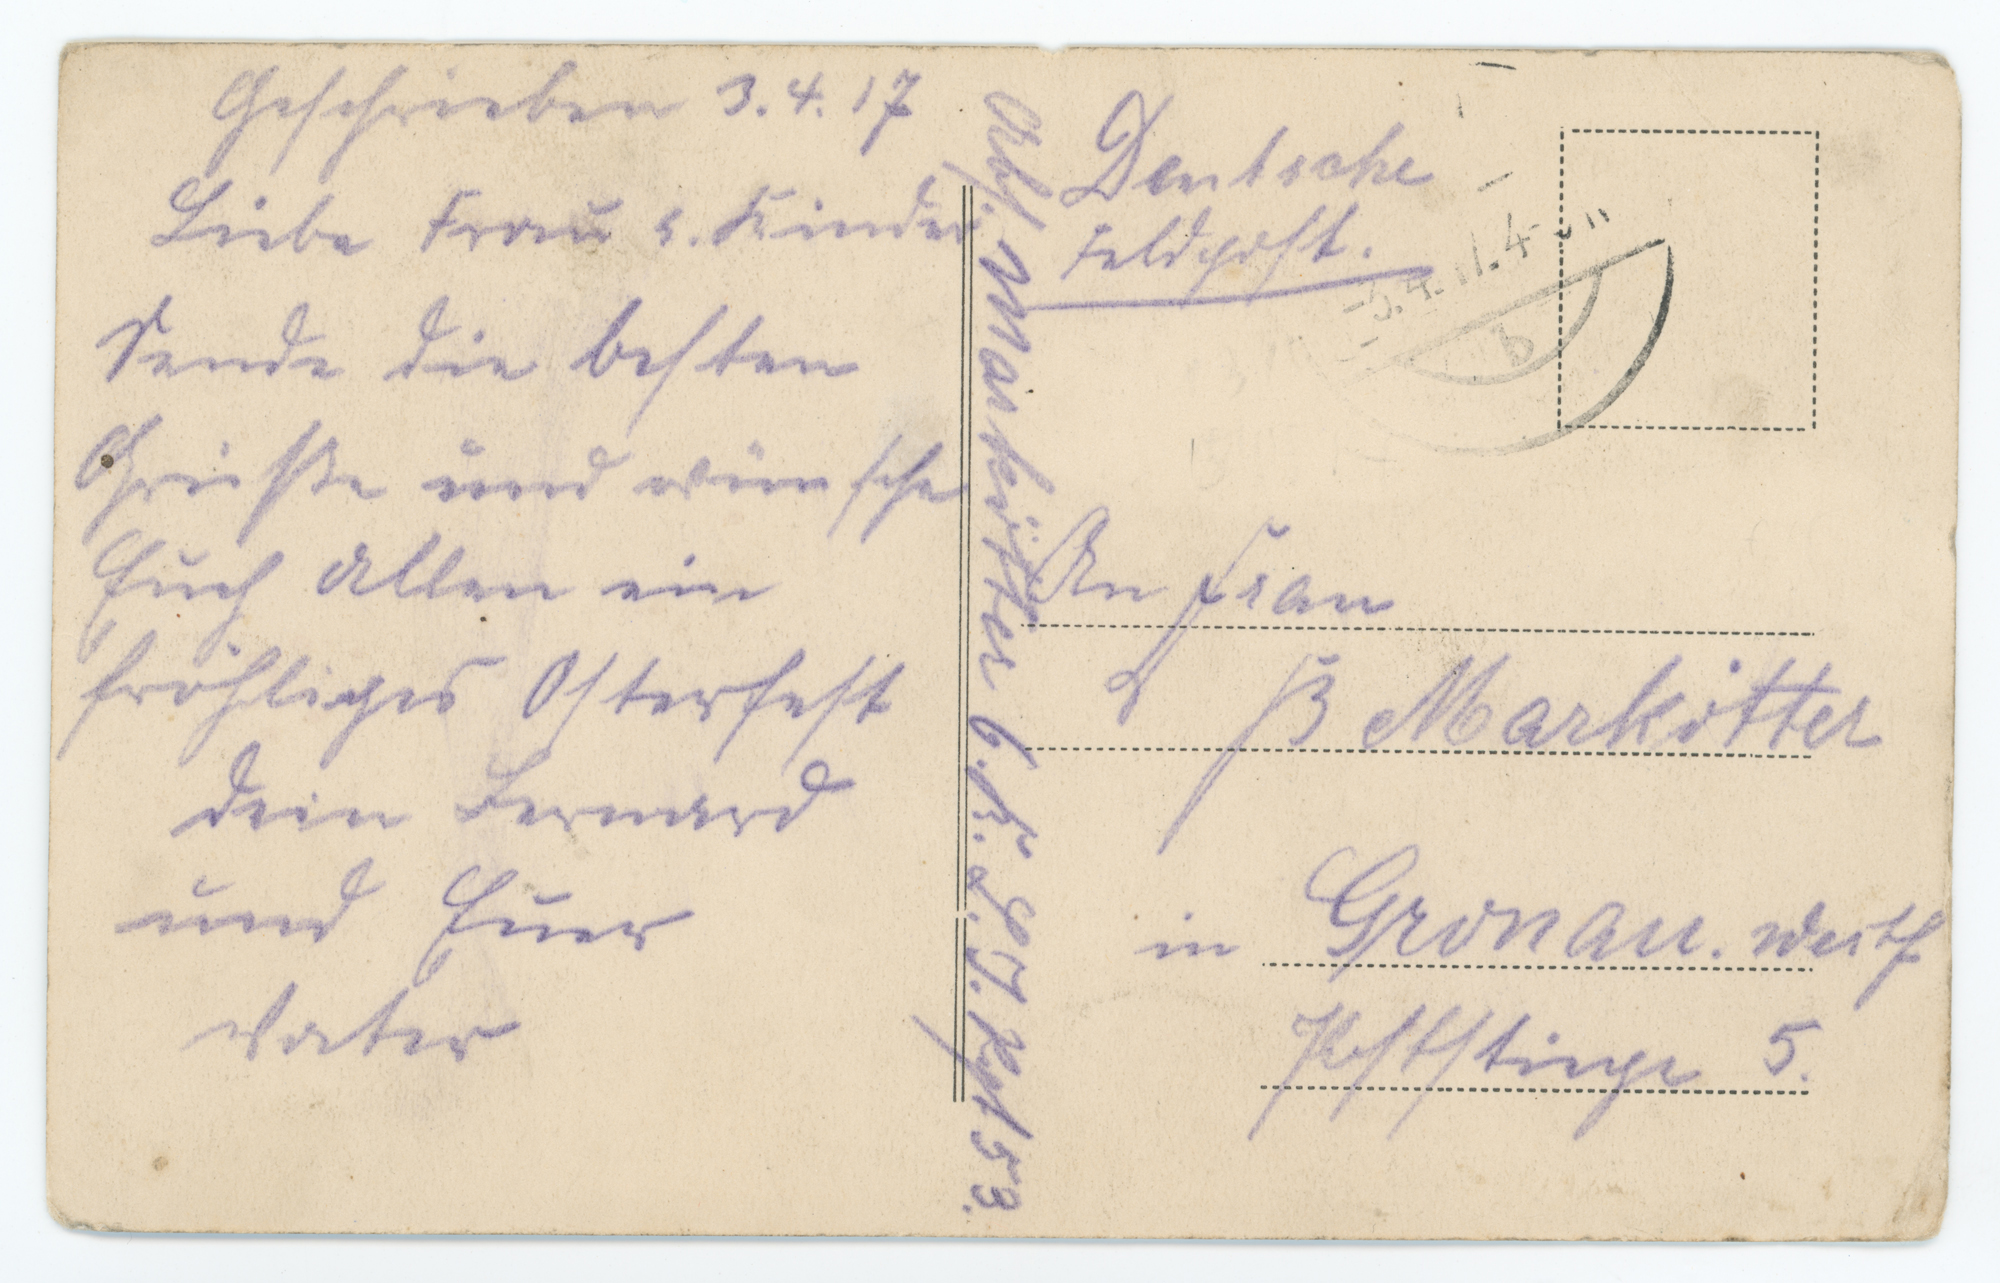 Geschrieben 3.4.17
Liebe Frau u. Kinder
Sende die besten
Grüße und wünsche
Euch allen ein
fröhliges Osterfest
dein Bernard
und Euer
Vater
Abs. Markötter 6. K. L. I. Rgt 53.
Deutsche
Feldpost.
b
An Frau
B Markötter
in Gronau. Westf
Poststiege 5.